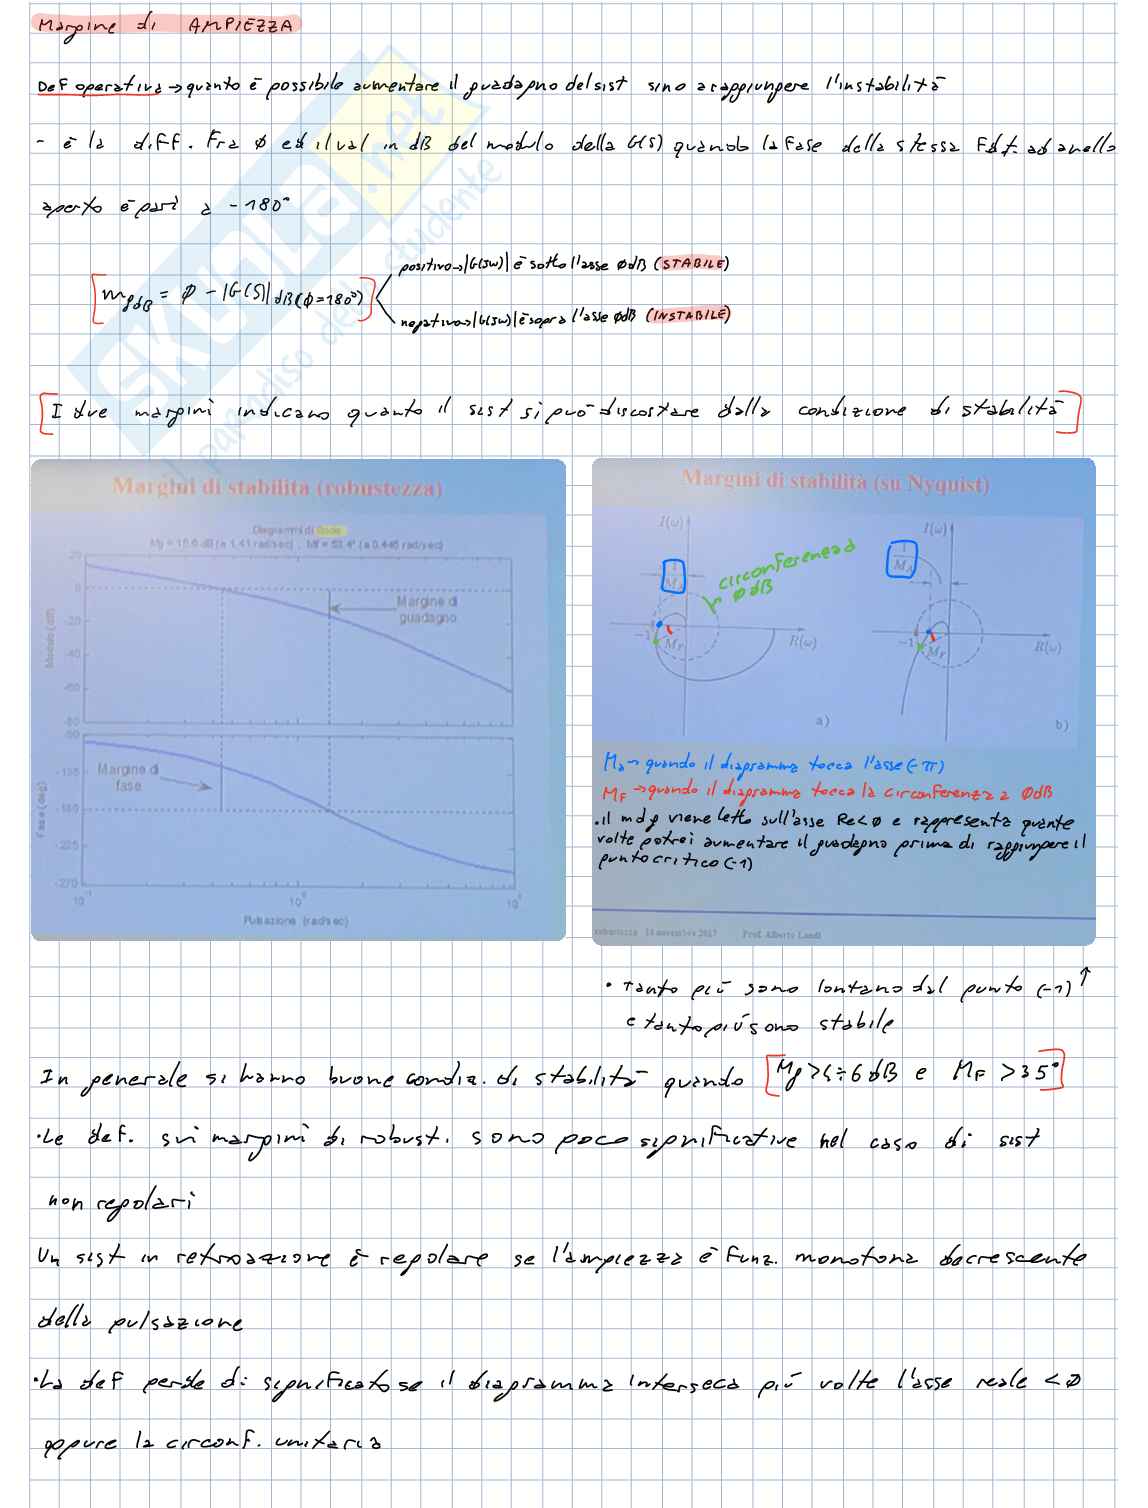 Margine di AMPIEZZA
Def operativa → quanto è possibile aumentare il guadagno del sist sino a raggiungere l'instabilità
- è la diff. Fra ø ed il val in dB del modulo della G(s) quando la fase della stessa Fdt. ad anello
aperto è pari a -180°
positivo→|G(jw)| è sotto l'asse ødB (STABILE)
m_gdB = ø - |G(s)|dB(ϕ=180°)
negativo→|G(jw)| è sopra l'asse ødB (INSTABILE)
I due margini indicano quanto il sist si può discostare dalla condizione di stabilità
Margini di stabilita (robustezza)
Diagrammi di Bode
Mg = 15.6 dB (a 1.41 rad/sec) , Mf = 53.4° (a 0.446 rad/sec)
20
0
-20
-40
-60
-80
Modulo (dB)
Margine di
guadagno
-90
-135
-180
-225
-270
Fase (deg)
Margine di
fase
10
10
10
Pulsazione (rad/sec)
Margini di stabilità (su Nyquist)
I(ω)
1
M_A
circonferenza a
ødB
-1
M_F
R(ω)
a)
I(ω)
1
M_A
-1
M_F
R(ω)
b)
Ma→ quando il diagramma tocca l'asse (-π)
MF → quando il diagramma tocca la circonferenza a ødB
.il mdg viene letto sull'asse Re<ø e rappresenta quante
volte potrei aumentare il guadagno prima di raggiungere il
punto critico (-1)
robustezza 14 novembre 2017 Prof. Alberto Landi
• Tanto più sono lontano dal punto (-1) ↑
e tanto più sono stabile
In generale si hanno buone condiz. di stabilità quando [Mg>4÷6dB e MF >35°]
•Le def. sui margini di robust. sono poco significative nel caso di sist
non regolari
Un sist in retroazione è regolare se l'ampiezza è funz. monotona decrescente
della pulsazione
•La def perde di significato se il diagramma interseca più volte l'asse reale <ø
oppure la circonf. unitaria
SKUOLA.net
il paradiso dello studente